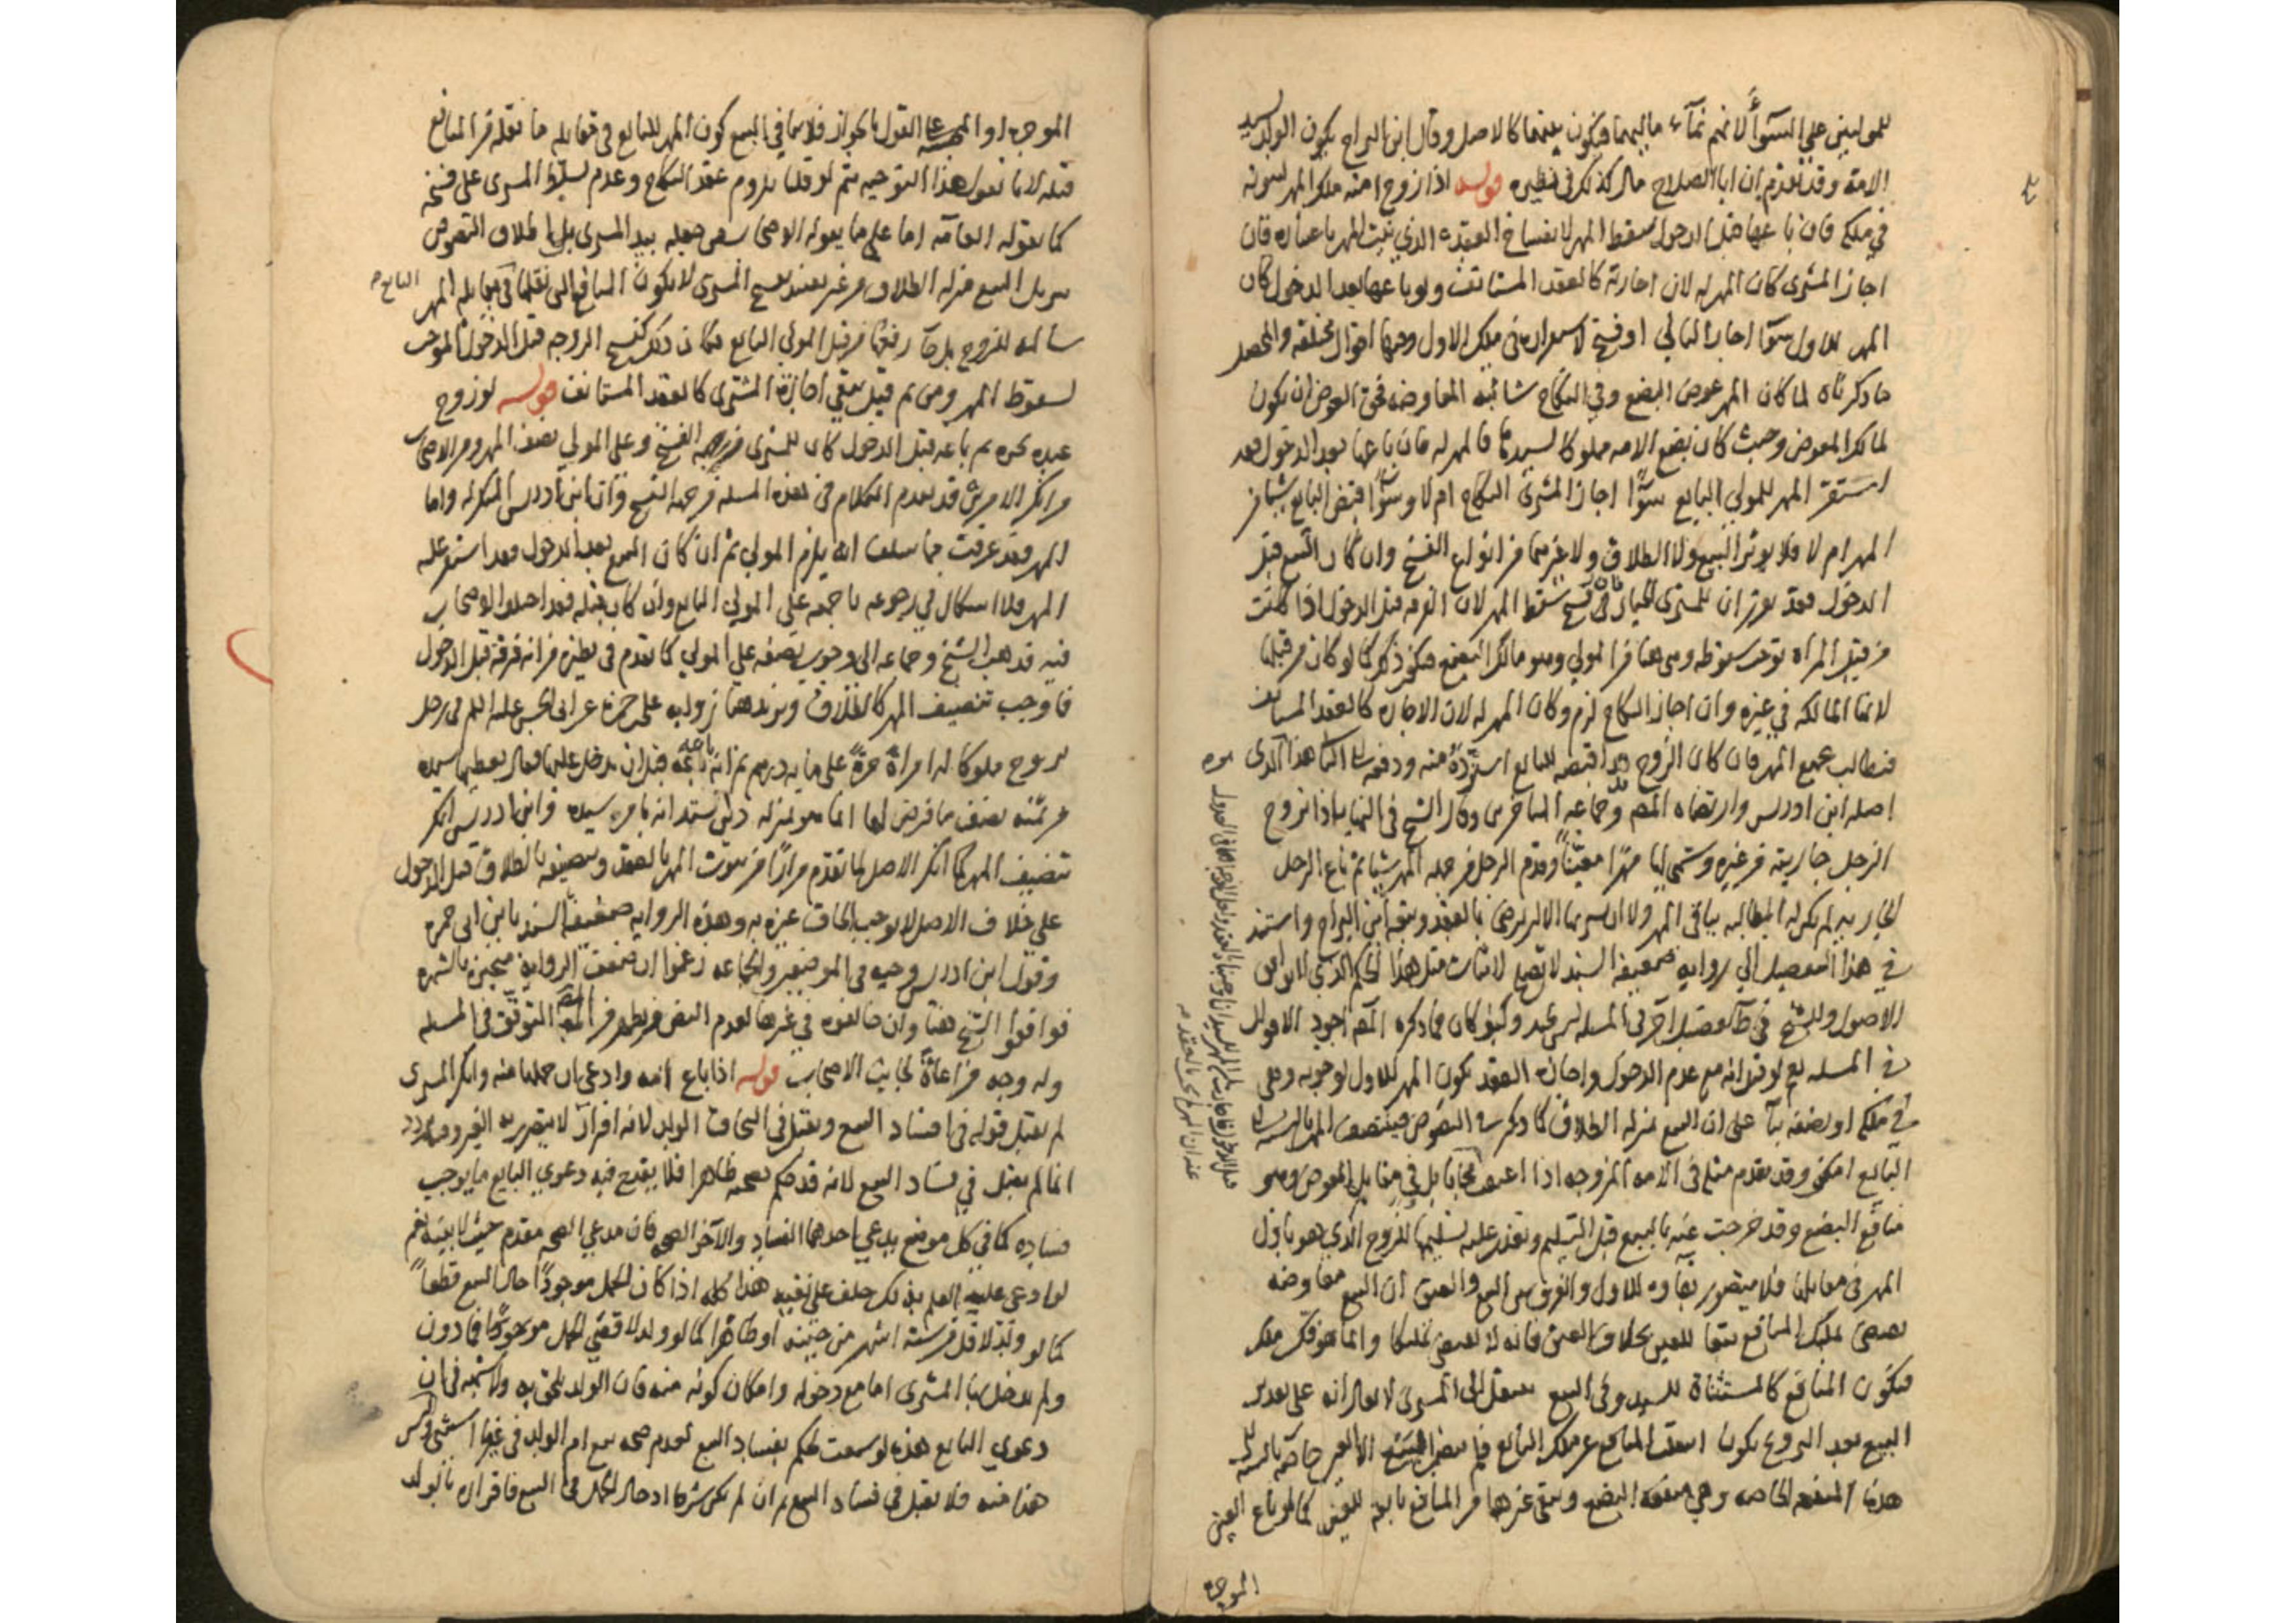 للموليين على السواء لانهم نماء ماليهما فيكون بينهما كالاصل وقال ابن البراج يكون الولد لسيد
الامة وقد تقدم ان ابا الصلاح قال كذلك في نظيره قوله اذا زوج امته ملك المهر لثبوته
في ملكه فان باعها قبل الدخول سقط المهر لانفساخ العقد الذي ثبت المهر باعتباره فان
اجاز المشتري كان المهر له لان اجازته كالعقد المستانف ولو باعها بعد الدخول كان
المهر للاول سواء اجاز الثاني او فسخ لاستقراره في ملك الاول وفيها اقوال مختلفة والمحصل
ما ذكرناه لما كان المهر عوض البضع وفي النكاح شائبة المعاوضة فحق العوض ان يكون
لمالك المعوض وحيث كان بضع الامة مملوكا لسيدها فالمهر له فان باعها بعد الدخول فقد
استقر المهر للمولى البايع سواء اجاز المشتري النكاح ام لا وسواء قبض البايع شيئا من
المهر ام لا فلا يوثر البيع ولا الطلاق ولا غيرهما من انواع الفسخ وان كان البيع قبل
الدخول فقد تقرر ان للمشتري الخيار فان فسخ سقط المهر لان الفرقة قبل الدخول اذا كانت
من قبل المراة توجب سقوطه وهي هنا من المولى وهو مالك البضع فيكون ذلك كما لو كان من قبلها
لانها المالكة في غيره وان اجاز النكاح لزم وكان المهر له لان الاجازة كالعقد المستانف
فيطالب بجميع المهر فان كان الزوج قد اقبضه للبايع استرده منه ودفعه الى الثاني هذا الذي
اصله ابن ادريس وارتضاه المص وجماعة المتاخرين وقال الشيخ في النهاية اذا زوج
الرجل جاريته من غيره وسمى لها مهرا معينا وقدم الرجل من جملة المهر شيئا ثم باع الرجل
الجارية لم يكن له المطالبة بباقي المهر ولا لمن يشتريها الا ان يرضى بالعقد وتبعه ابن البراج واستند
في هذا التفصيل الى رواية ضعيفة السند لا تصلح لاثبات مثل هذا الحكم الذي لا يوافق
الاصول وللشيخ في ط تفصيل اخر في المسئلة غير جيد وكيف كان فما ذكره المص اجود الاقوال
في المسئلة نعم لو قيل انه مع عدم الدخول واجازة العقد يكون المهر للاول لوجوبه وهي
في ملكه او نصفه بناء على ان البيع بمنزلة الطلاق كما ذكر في النصوص فينتصف المهر بالنسبة الى
البايع امكن وقد تقدم مثله في الامة المزوجة اذا اعتقت لا يقال في مقابل العوض وهو
منافع البضع وقد خرجت عنه بالبيع قبل التسليم وتعذر عليه تسليمها للزوج الذي هو باذل
المهر في مقابلها فلا يتصور بقاوه للاول والفرق بين البيع والعتق ان البيع معاوضة
تقتضي تمليك المنافع تبعا للعين بخلاف العتق فانه لا يقتضي تمليكا وانما هو فك ملك
فيكون المنافع كالمستثناة للسيد وفي البيع ينتقل الى المشتري لا يقال انه على تقدير
البيع بعد التزويج يكون انتقلت المنافع عن ملك البايع فلم ينتقل الا العين خاصة بالنسبة الى
هذه المنفعة الخاصة وهي منفعة البضع ويبقى غيرها من المنافع تابعة للعين كما لو باع العين
الموجرة
الموجرة او القول بالجواز فلا ينافي البيع كون المهر للبايع في مقابلة ما نقله من المنافع
قبله لانا نقول هذا التوجيه يتم لو قلنا بلزوم عقد النكاح وعدم تسلط المشتري على فسخه
كما يقوله العامة اما على ما يقوله الاصحاب من جعله بيد المشتري بل اطلاق النصوص
تنزيل البيع منزلة الطلاق من غير تقييد بفسخ المشتري لا يكون المنافع التي نقلها في مقابلة المهر البايع
سالمة للزوج بل جاء رفعها من قبل المولى البايع فكان ذلك كفسخ الزوجة قبل الدخول الموجب
لسقوط المهر ومن ثم قيل بقي اجازة المشتري كالعقد المستانف قوله لو زوج
عبده بحرة ثم باعه قبل الدخول كان للمشتري الفسخ وعلى المولى نصف المهر ومن الاصحاب
من انكر الامرين قد تقدم الكلام في هذه المسئلة من جهة الفسخ وان ابن ادريس المنكر له واما
المهر فقد عرفت مما سلف انه يلزم المولى ثم ان كان البيع بعد الدخول فقد استقر عليه
المهر فلا اشكال في رجوعه باجمعه على المولى البايع وان كان قبله فقد اختلف الاصحاب
فيه فذهب الشيخ وجماعة الى وجوب نصفه على المولى كما تقدم في نظيره من انه فرقة قبل الدخول
فاوجب تنصيف المهر كالطلاق ويزيد هنا رواية على بن حمزة عن ابي الحسن عليه السلم في رجل
تزوج مملوكا له امراة حرة على ماية درهم ثم انه باعه قبل ان يدخل عليها فقال يعطيها سيده
من ثمنه نصف ما فرض لها انما هو بمنزلة دين استدانه بامر سيده وابن ادريس انكر
تنصيف المهر كما انكر الاصل لما تقدم مرارا من ثبوت المهر بالعقد وتنصيفه بالطلاق قبل الدخول
على خلاف الاصل لا يوجب الحاق غيره به وهذه الرواية ضعيفة السند بابن ابي حمزة
وقول ابن ادريس وجيه في الموضعين والجماعة زعموا ان ضعف الرواية منجبر بالشهرة
فوافقوا الشيخ هنا وان خالفوه في غيرها لعدم النص فيظهر من المص التوقف في المسئلة
وله وجه مراعاة لجانب الاصحاب قوله اذا باع امته وادعى ان حملها منه وانكر المشتري
لم يقبل قوله في افساد البيع ويقبل في التحاق الولد لانه اقرار لا يتضرر به الغير وفيه تردد
انما لم يقبل في فساد البيع لانه قد حكم بصحته ظاهرا فلا يقدح فيه دعوى البايع ما يوجب
فساده كما في كل موضع يدعي احدهما الفساد والآخر الصحة فان مدعي الصحة مقدم حيث لا بينة نعم
لو ادعى عليه العلم بذلك حلف على نفيه هذا كله اذا كان الحمل موجودا حال البيع قطعا
كما لو ولد لاقل من ستة اشهر من حينه او ظاهرا كما لو ولد لاقصى الحمل موجودا فما دون
ولم يدخل بها المشتري اما مع دخوله وامكان كونه منه فان الولد يلحق به ولا شبهة في ان
دعوى البايع هذه لو سمعت لحكم بفساد البيع لعدم صحة بيع ام الولد في غير ما استثني وليس
هذا منه فلا يقبل في فساد البيع ثم ان لم يكن شرطا ادخال الحمل في البيع فاقراره بالولد